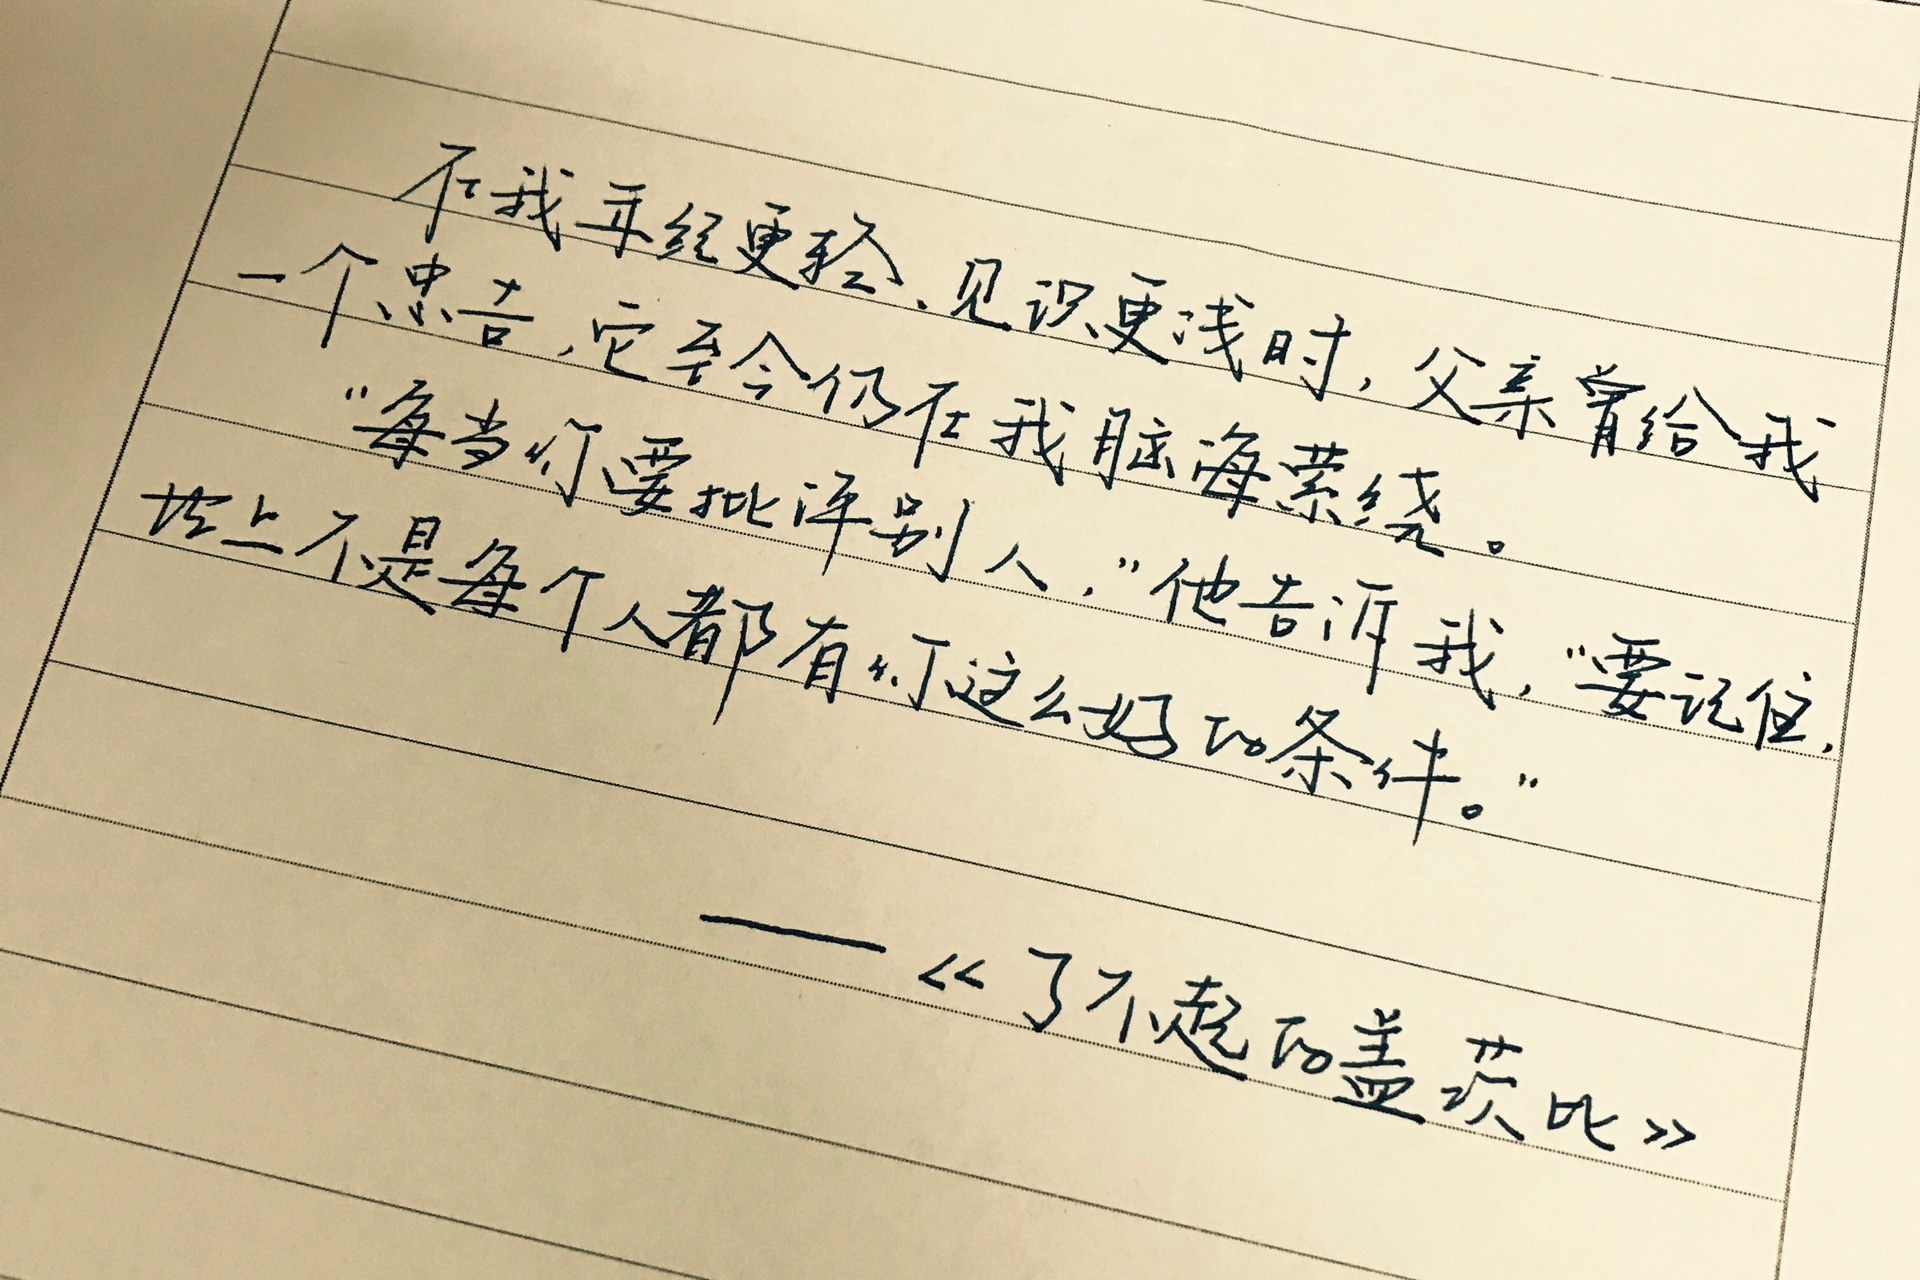 在我年纪更轻、见识更浅时，父亲曾给我
一个忠告，它至今仍在我脑海萦绕。
“每当你要批评别人，”他告诉我，“要记住，
世上不是每个人都有你这么好的条件。”
——《了不起的盖茨比》